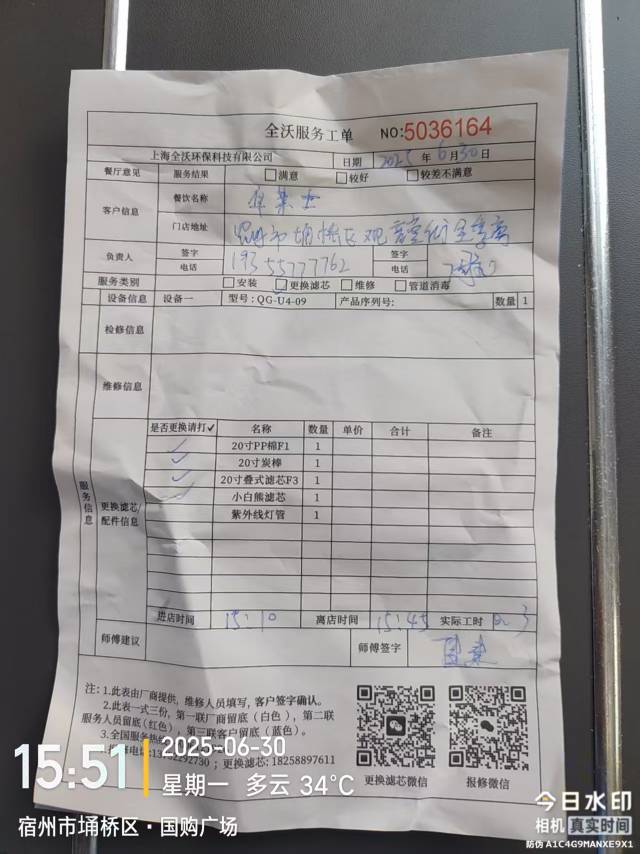 全沃服务工单 NO:5036164
上海全沃环保科技有限公司 日期 2025 年 6 月 30 日
餐厅意见 服务结果 满意 较好 较差不满意
客户信息 餐饮名称 必胜客
门店地址
负责人 签字 签字
电话 19355777762 电话
服务类别 安装 更换滤芯 维修 管道消毒
设备信息 设备一 型号: QG-U4-09 产品序列号: 数量 1
检修信息
维修信息
服务信息
更换滤芯/配件信息
是否更换请打✓ 名称 数量 单价 合计 备注
✓ 20寸PP棉F1 1
✓ 20寸炭棒 1
✓ 20寸叠式滤芯F3 1
小白熊滤芯 1
紫外线灯管 1
进店时间 15:10 离店时间 15:45 实际工时
师傅建议 师傅签字
注: 1.此表由厂商提供, 维修人员填写, 客户签字确认。
2.此表一式三份, 第一联厂商留底 (白色), 第二联
服务人员留底(红色), 第三联客户留底 (蓝色)。
3.全国服务热
报修电话: ; 更换滤芯: 18258897611
更换滤芯微信 报修微信
15:51 2025-06-30
星期一 多云 34℃
宿州市埇桥区·国购广场
今日水印
相机 真实时间
防伪 A1C4G9MANXE9X1